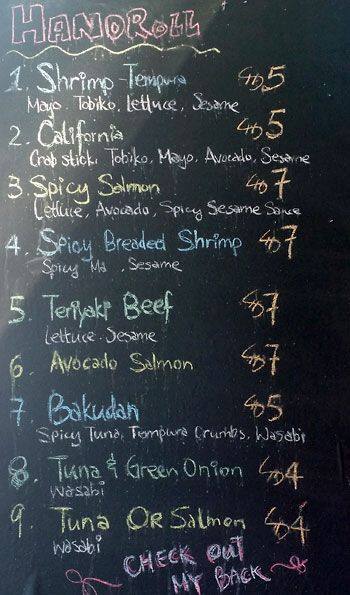 HANDROLL
1. Shrimp-Tempura $5
Mayo, Tobiko, Lettuce, Sesame
2. California $5
Crab stick, Tobiko, Mayo, Avocado, Sesame
3. Spicy Salmon $7
Lettuce, Avocado, Spicy Sesame Sauce
4. Spicy Breaded Shrimp $7
Spicy Ma , Sesame
5. Teriyaki Beef $7
Lettuce. Sesame
6. Avocado Salmon $7
7. Bakudan $5
Spicy Tuna, Tempura Crumbs, Wasabi
8. Tuna & Green Onion $4
Wasabi
9. Tuna OR Salmon $4
Wasabi
CHECK OUT
MY BACK